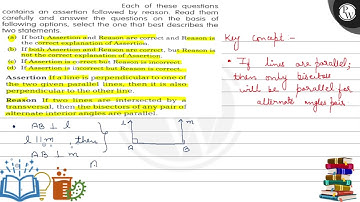 Each of these questions
contains an assertion followed by reason. Read them
carefully and answer the questions on the basis of
following options, select the one that best describes the
two statements.
(a) If both Assertion and Reason are correct and Reason is
the correct explanation of Assertion.
(b) If both Assertion and Reason are correct, but Reason is
not the correct explanation of Assertion.
(c) If Assertion is correct but Reason is incorrect.
(d) If Assertion is incorrect but Reason is correct.
Assertion If a line is perpendicular to one of
the two given parallel lines, then it is also
perpendicular to the other line.
Reason If two lines are intersected by a
transversal, then the bisectors of any pair of
alternate interior angles are parallel.
Key concept -
• If lines are parallel,
then only bisectors
will be parallel for
alternate angles pair
• AB ⊥ l
l || m, then
AB ⊥ m
l
m
A
B